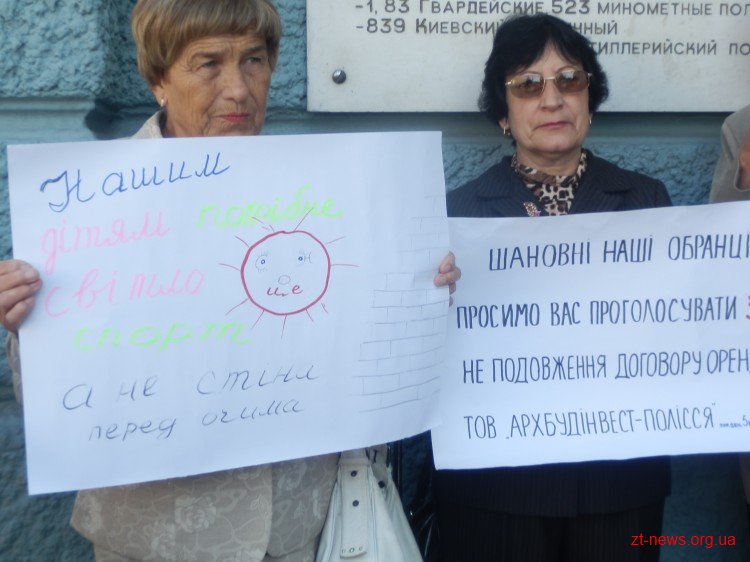 -1, 83 Гвардейские 523 минометные пол
-839 Киевский
тиллерийский по
Нашим
дітям потрібне
світла
це
спорт
а не стіни
перед очима
ШАНОВНІ НАШІ ОБРАНЦІ
ПРОСИМО ВАС ПРОГОЛОСУВАТИ З
НЕ ПОДОВЖЕННЯ ДОГОВОРУ ОРЕН
ТОВ „АРХБУДІНВЕСТ-ПОЛІССЯ"
zt-news.org.ua